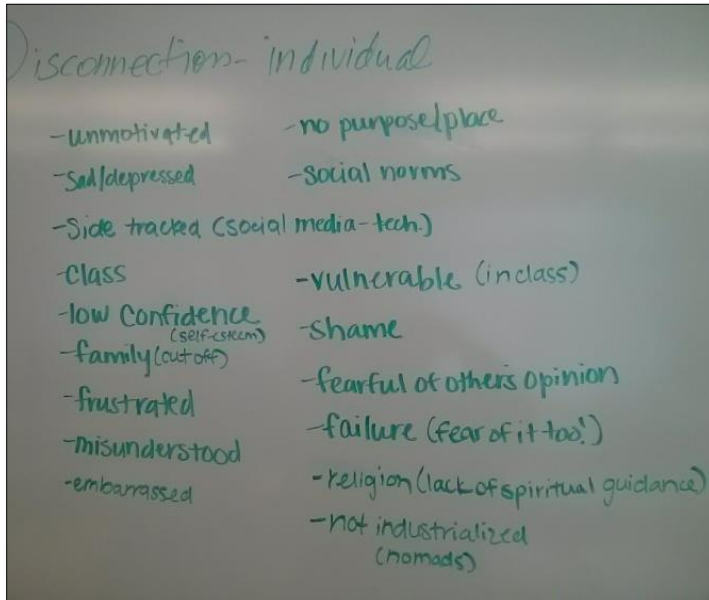 Disconnection- individual
-unmotivated
-sad/depressed
-Side tracked (social media-tech.)
-class
-low confidence
(self-esteem)
-family (cut off)
-frustrated
-misunderstood
-embarrassed
-no purpose/place
-social norms
-vulnerable (in class)
-shame
-fearful of others opinion
-failure (fear of it too!)
-religion (lack of spiritual guidance)
-not industrialized
(nomads)